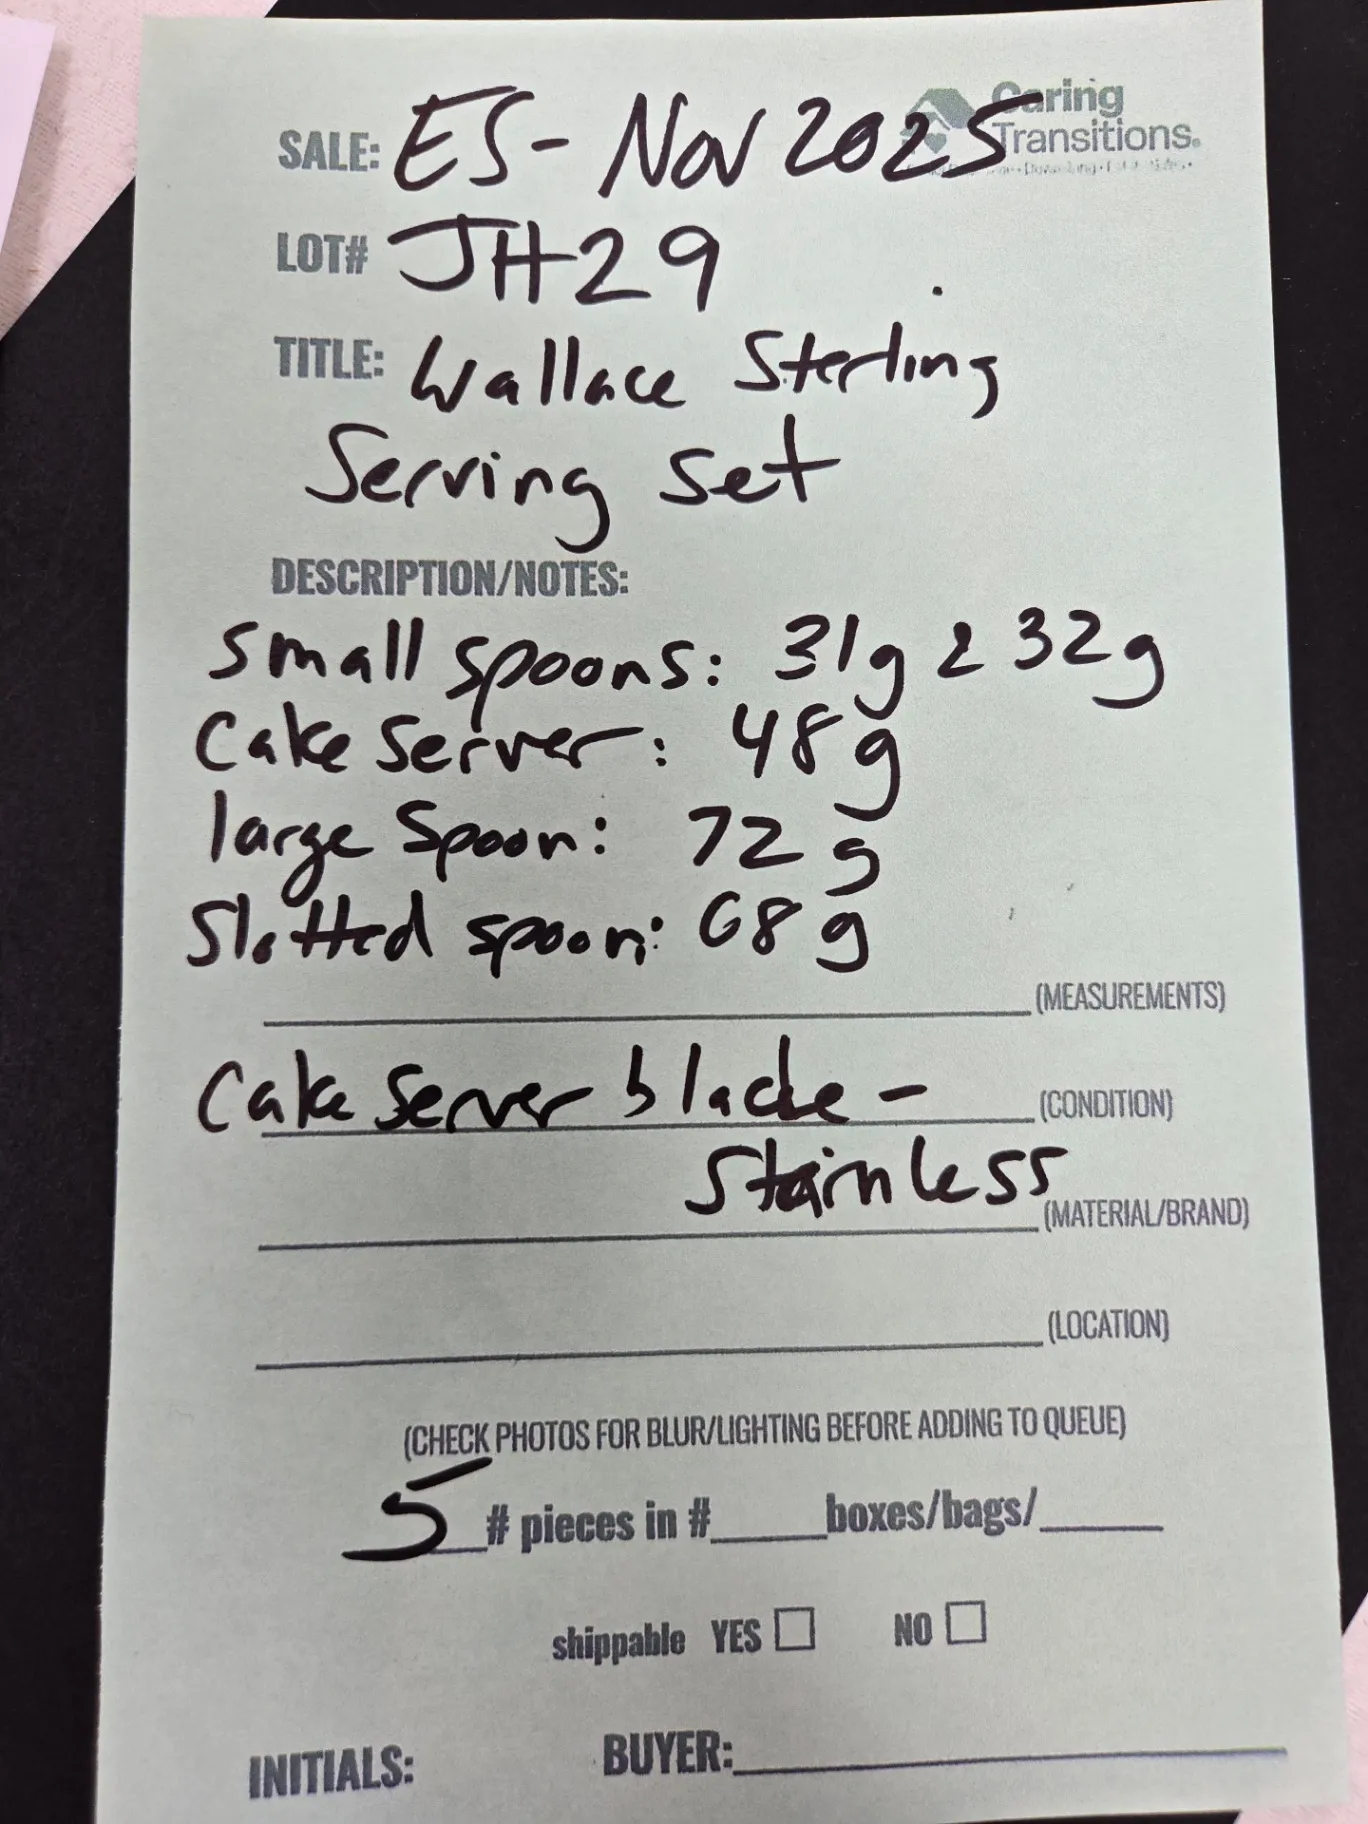 Caring
Transitions.
SALE: ES- Nov 2025
LOT# JH29
TITLE: Wallace Sterling
Serving Set
DESCRIPTION/NOTES:
Small spoons: 31g & 32g
Cake Server: 48g
large Spoon: 72g
Slotted spoon: 68g
(MEASUREMENTS)
Cake Server blade - (CONDITION)
Stainless
(MATERIAL/BRAND)
(LOCATION)
(CHECK PHOTOS FOR BLUR/LIGHTING BEFORE ADDING TO QUEUE)
5 # pieces in #______boxes/bags/______
shippable YES NO
INITIALS: BUYER: